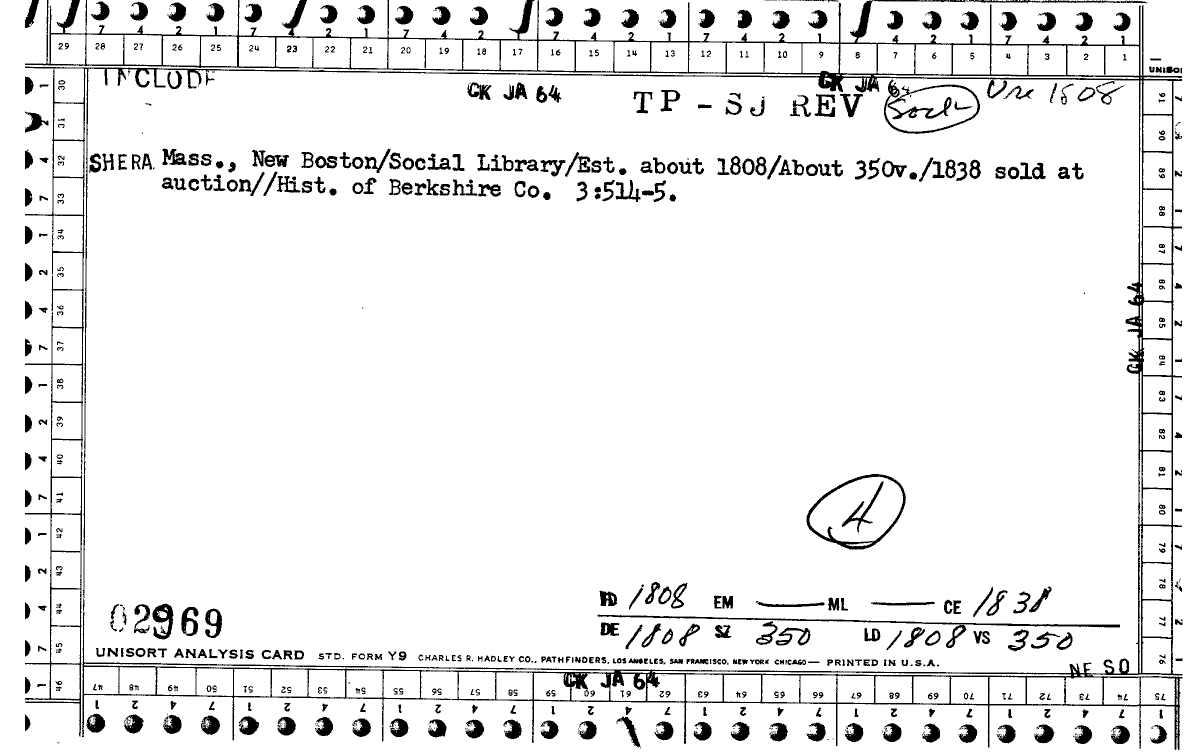 7 4 2 1 7 4 2 1 7 4 2 1 7 4 2 1 7 4 2 1 7 4 2 1 7 4 2 1
29 28 27 26 25 24 23 22 21 20 19 18 17 16 15 14 13 12 11 10 9 8 7 6 5 4 3 2 1
INCLUDE
CK JA 64
TP - SJ REV
CK JA 64
Use 1808
SHERA Mass., New Boston/Social Library/Est. about 1808/About 350v./1838 sold at
auction//Hist. of Berkshire Co. 3:514-5.
CK JA 64
4
02969
FD 1808 EM — ML — CE 1838
DE 1808 SZ 350 LD 1808 VS 350
UNISORT ANALYSIS CARD STD. FORM Y9 CHARLES R. HADLEY CO., PATHFINDERS, LOS ANGELES, SAN FRANCISCO, NEW YORK CHICAGO — PRINTED IN U.S.A.
NE SO
CK JA 64
30 31 32 33 34 35 36 37 38 39 40 41 42 43 44 45 46
47 48 49 50 51 52 53 54 55 56 57 58 59 60 61 62 63 64 65 66 67 68 69 70 71 72 73 74 75
91 90 89 88 87 86 85 84 83 82 81 80 79 78 77 76